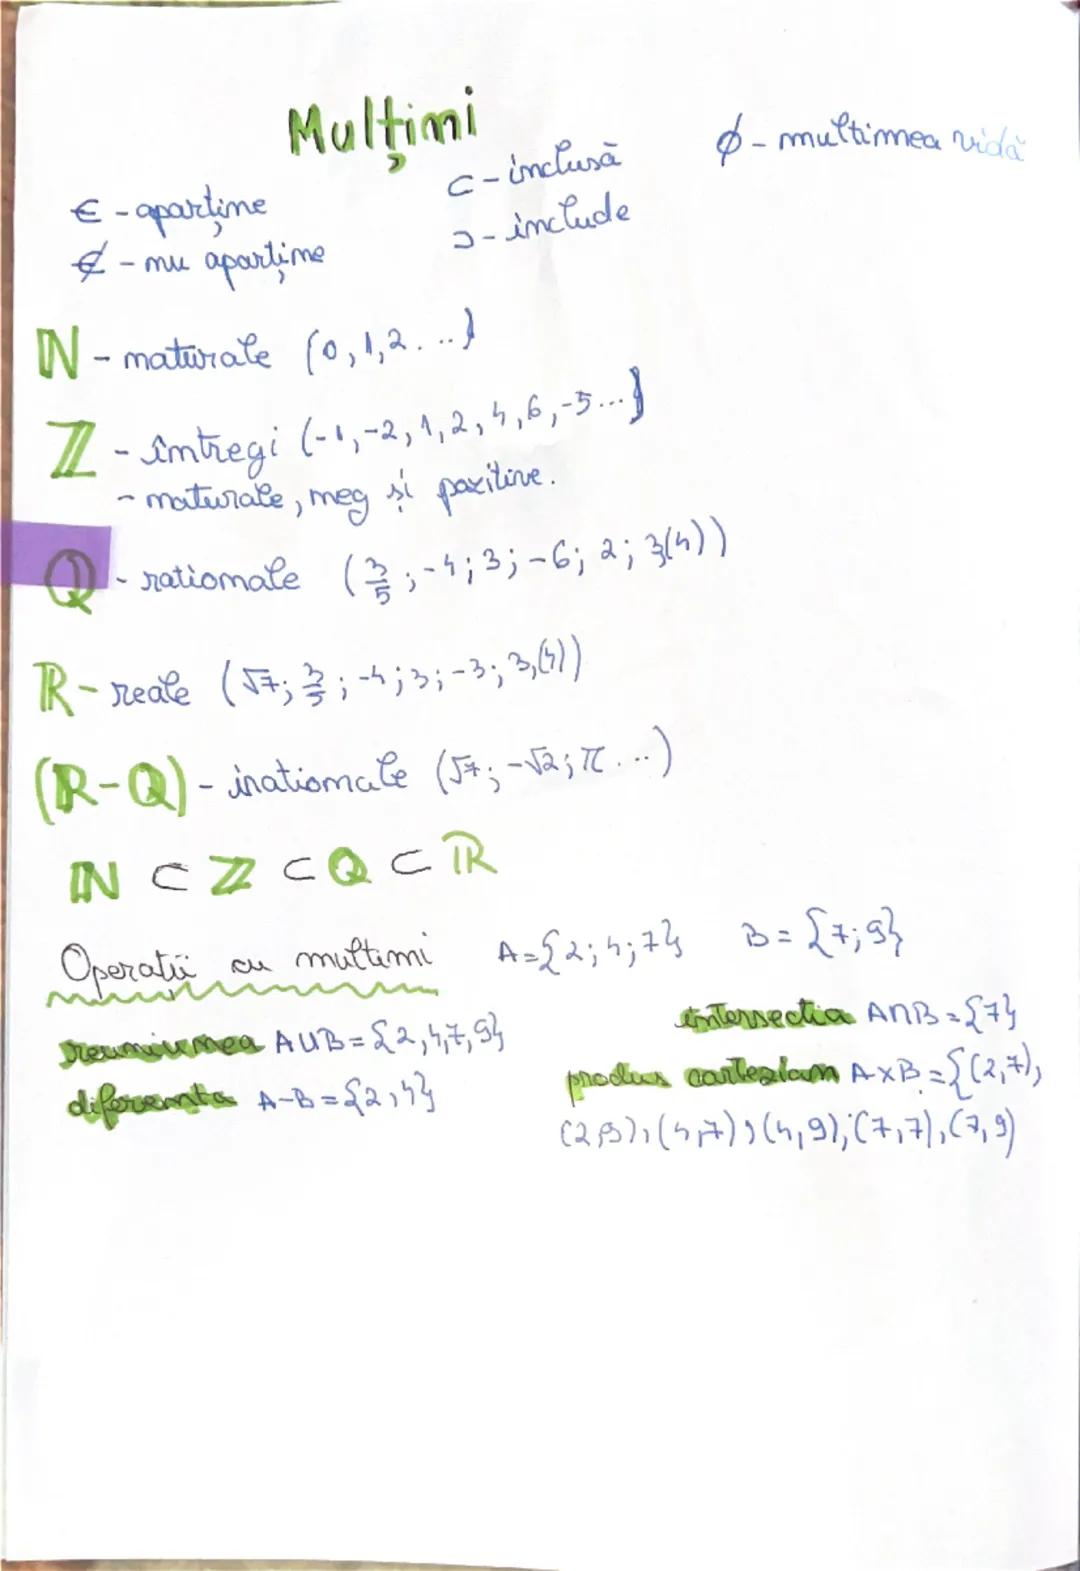 Mulțimi
∅ - multimea vidă
∈ - aparține
⊂ - inclusă
∉ - nu aparține
⊃ - include
ℕ - naturale (0, 1, 2 ...}
ℤ - întregi (-1, -2, 1, 2, 4, 6, -5...}
- naturale, neg și pozitive.
Q - rationale (3/5; -4; 3; -6; 2; 3(4))
ℝ - reale (√7; 3/5; -4; 3; -3; 3,(4))
(ℝ-Q) - irationale (√7; -√2; π ...)
ℕ ⊂ ℤ ⊂ Q ⊂ ℝ
Operații cu multimi A={2; 4; 7} B={7; 9}
reuniunea A∪B={2,4,7,9}
intersectia A∩B={7}
diferenta A-B={2,4}
produs cartezian A×B={(2,7),
(2,9),(4,7),(4,9),(7,7),(7,9)